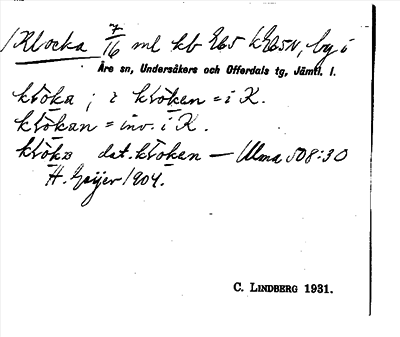 Klocka 7/16 ml kb 265 k 265N, by i
Åre sn, Undersåkers och Offerdals tg, Jämtl. l.
klòka ; i klòken = i K.
klòkan = inv. i K.
klòka dat. klòkan — Ulma 508:30
H. Geijer 1904.
C. LINDBERG 1931.